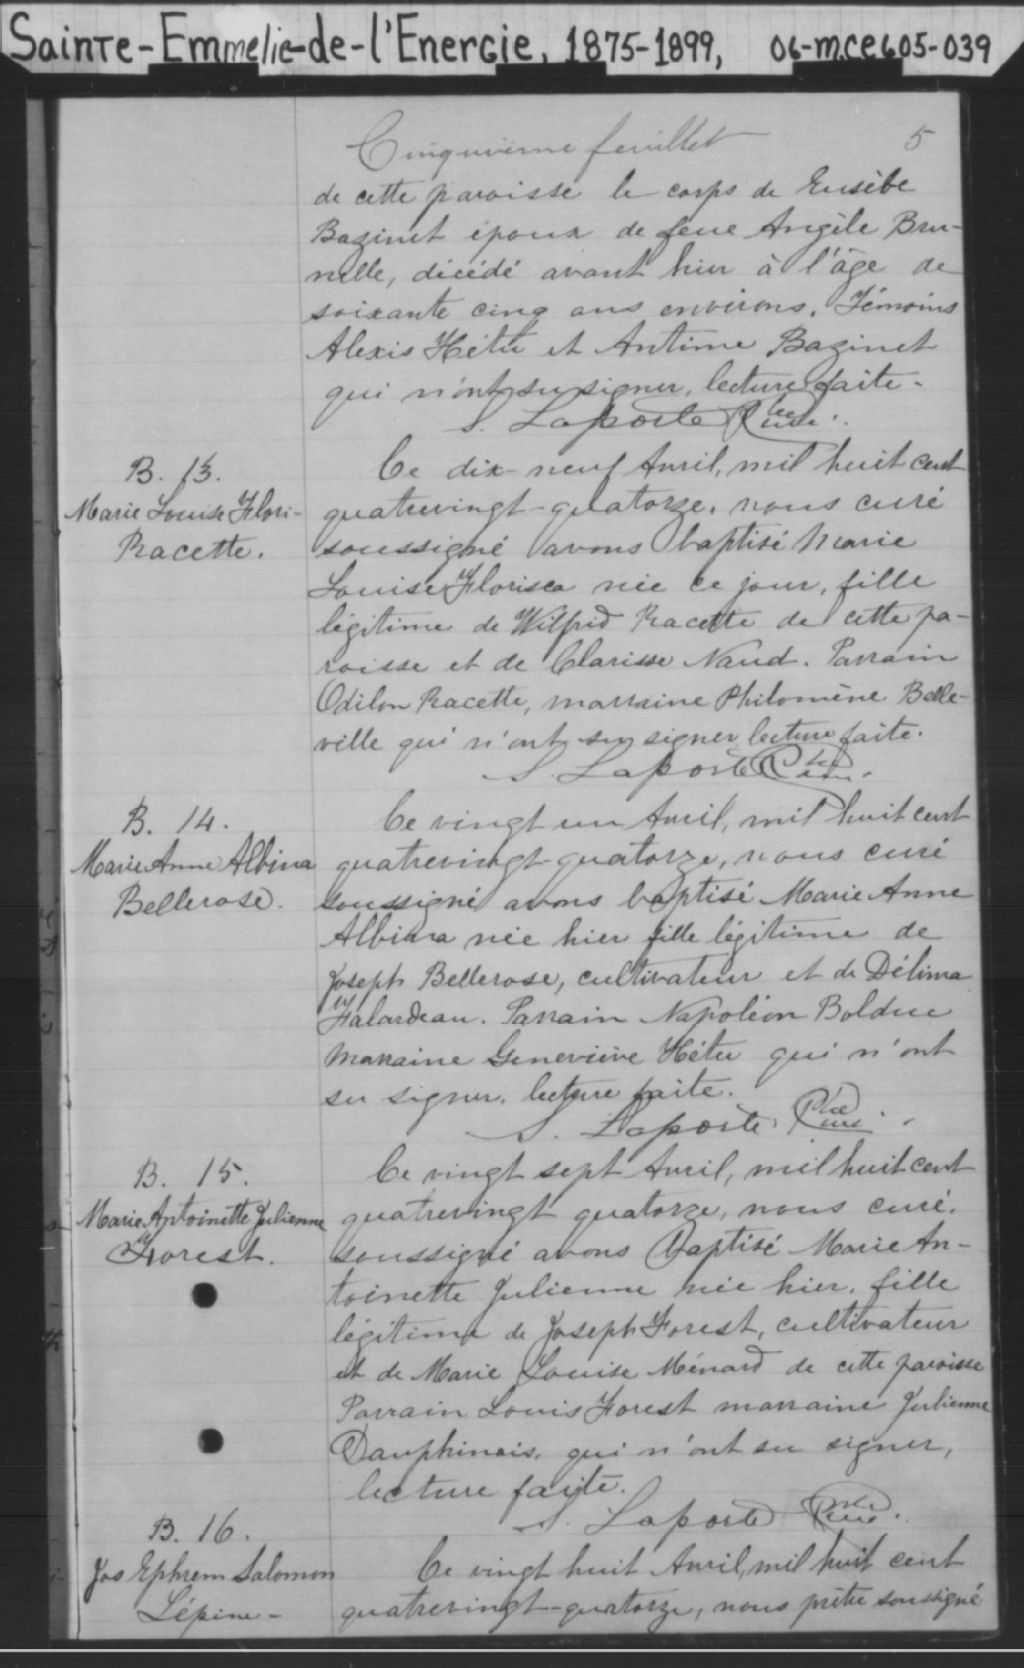 Sainte-Emmelie-de-l'Energie, 1875-1899, 06-M.CE605-039
Cinquième feuillet 5
de cette paroisse le corps de Eusèbe
Bazinet époux de feue Angèle Bru-
nelle, décédé avant hier à l'âge de
soixante cinq ans environs. Témoins
Alexis Hétu et Antime Bazinet
qui n'ont su signer, lecture faite.
S. Laporte Ptre Curé.
B. 13.
Marie Louise Flori-
Racette.
Ce dix-neuf Avril, mil huit cent
quatrevingt-quatorze, nous curé
soussigné avons baptisé Marie
Louise Florisca née ce jour, fille
légitime de Wilfrid Racette de cette pa-
roisse et de Clarisse Naud. Parrain
Odilon Racette, marraine Philomène Belle-
ville qui n'ont su signer lecture faite.
S. Laporte Ptre Curé.
B. 14.
Marie Anne Albina
Bellerose.
Ce vingt un Avril, mil huit cent
quatrevingt-quatorze, nous curé
soussigné avons baptisé Marie Anne
Albina née hier fille légitime de
Joseph Bellerose, cultivateur et de Délima
Falardeau. Parrain Napoléon Bolduc
marraine Geneviève Hétu qui n'ont
su signer, lecture faite.
S. Laporte Ptre Curé.
B. 15.
Marie Antoinette Julienne
Forest.
Ce vingt sept Avril, mil huit cent
quatrevingt quatorze, nous curé,
soussigné avons Baptisé Marie An-
toinette Julienne née hier, fille
légitime de Joseph Forest, cultivateur
et de Marie Louise Ménard de cette paroisse
Parrain Louis Forest marraine Julienne
Dauphinais, qui n'ont su signer,
lecture faite.
S. Laporte Ptre Curé.
B. 16.
Jos Ephrem Salomon
Lépine-
Ce vingt huit Avril, mil huit cent
quatrevingt-quatorze, nous prêtre soussigné